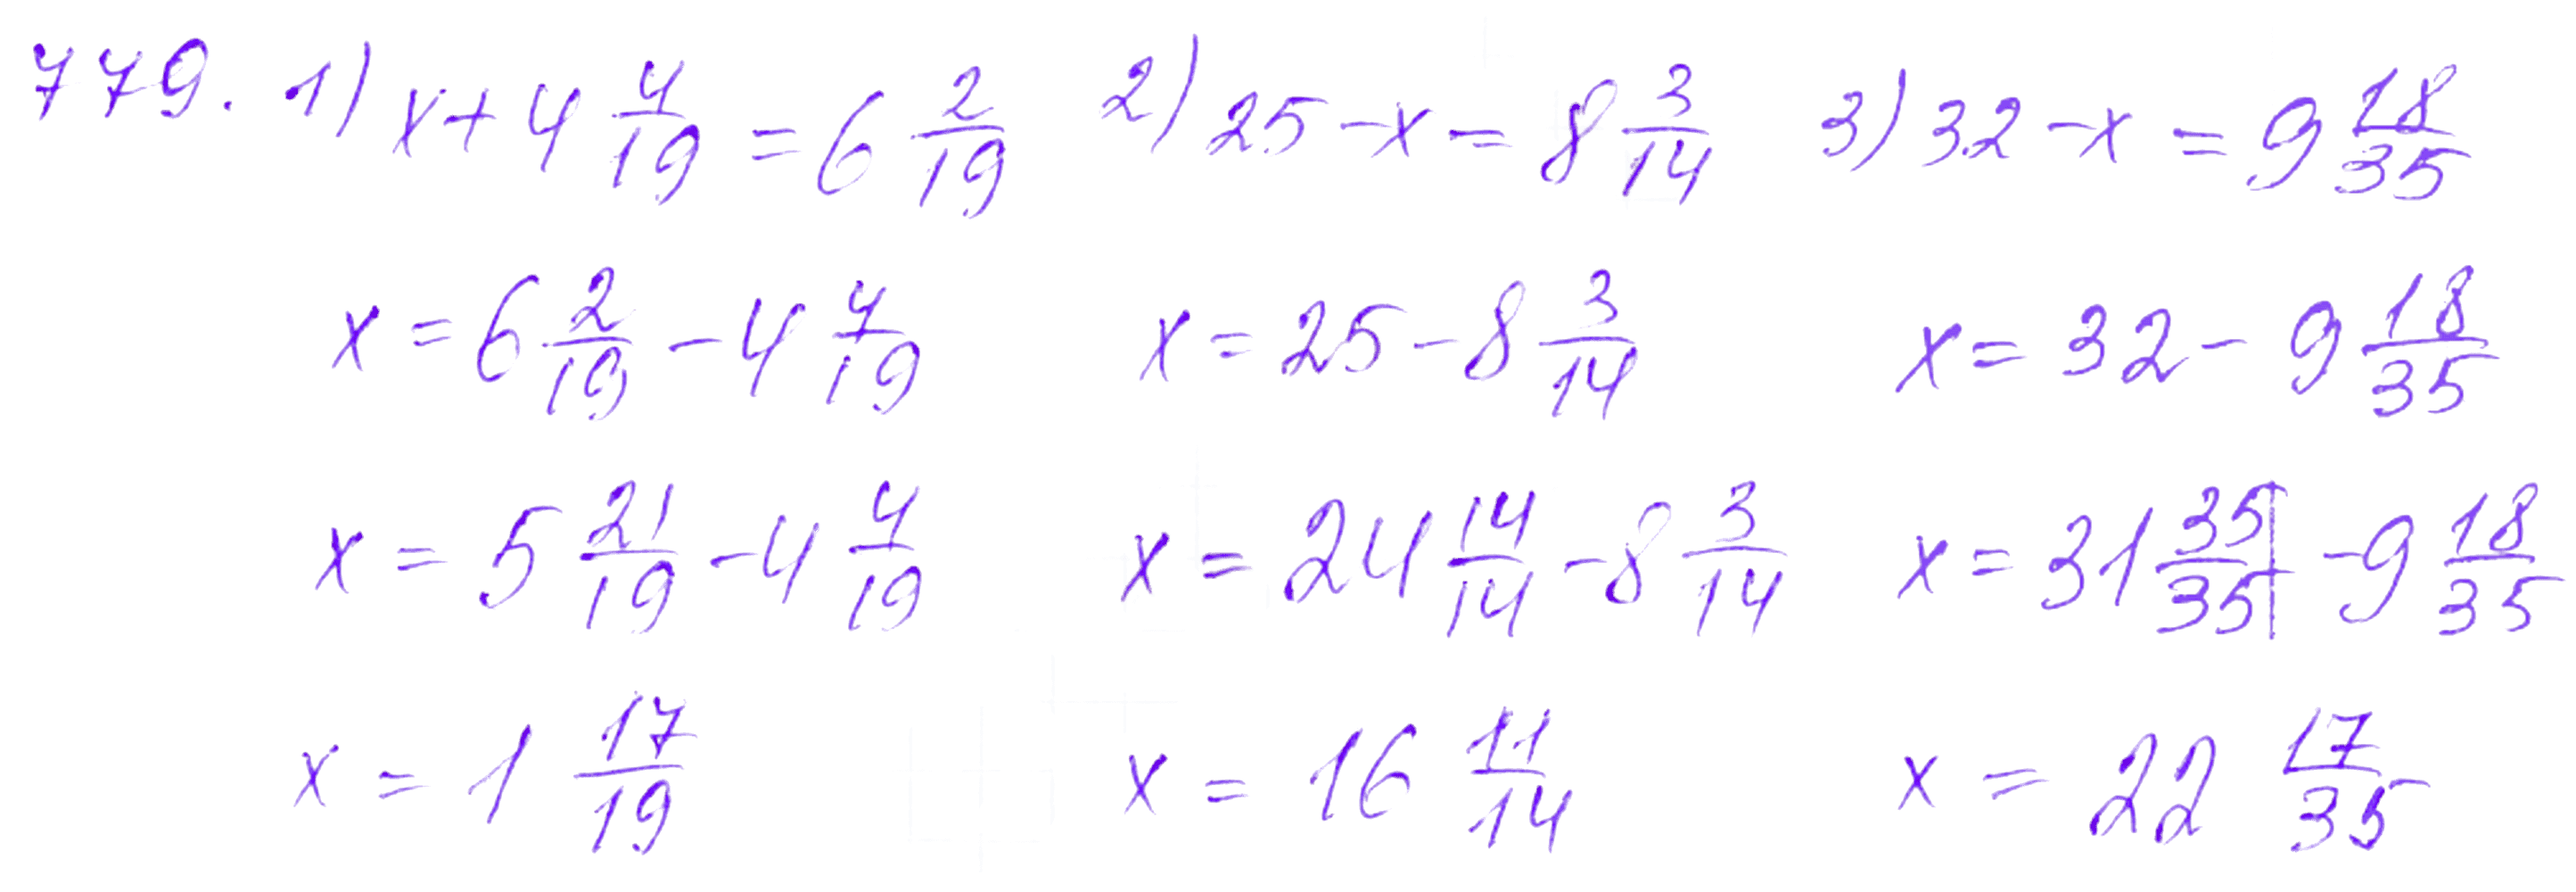 779. 1) x + 4 4/19 = 6 2/19   2) 25 - x = 8 3/14   3) 32 - x = 9 18/35
x = 6 2/19 - 4 4/19   x = 25 - 8 3/14   x = 32 - 9 18/35
x = 5 21/19 - 4 4/19   x = 24 14/14 - 8 3/14   x = 31 35/35 - 9 18/35
x = 1 17/19   x = 16 11/14   x = 22 17/35